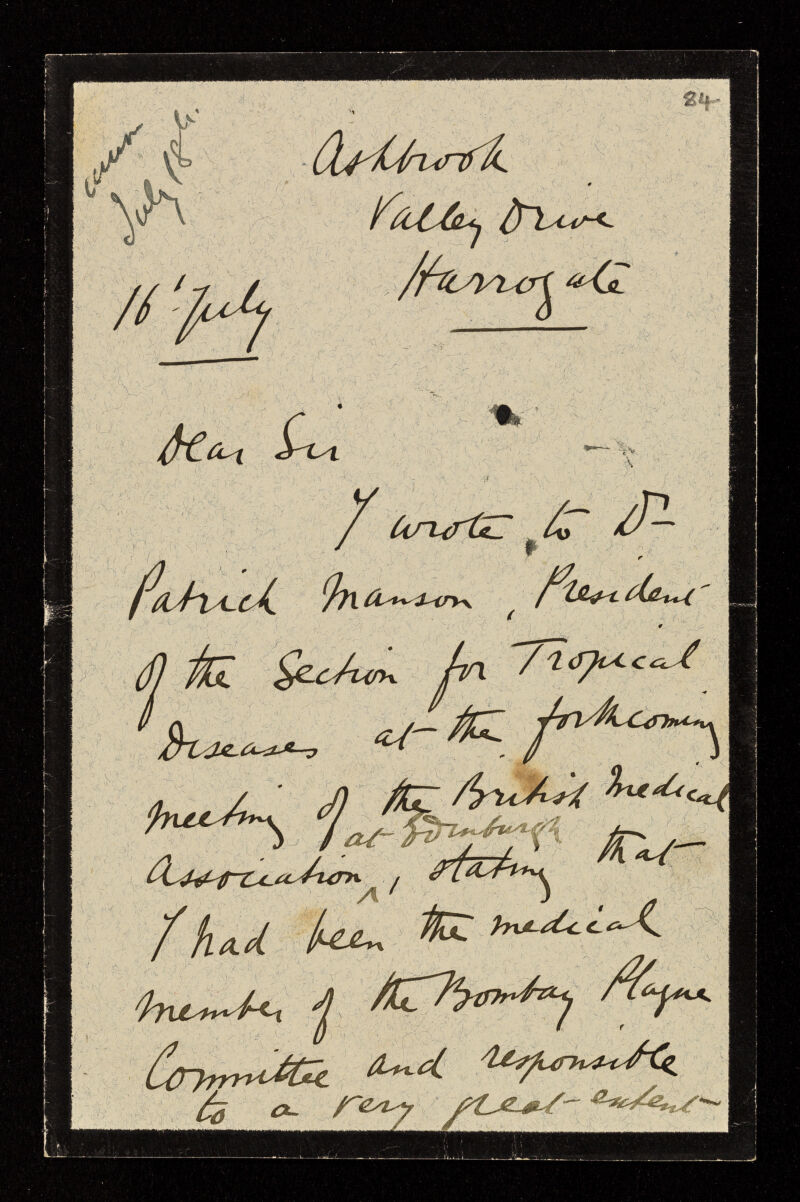 84
July 18th.
Ashbrook
Valley Drive
Harrogate
16' July
Dear Sir
I wrote to Dr
Patrick Manson, President
of the Section for Tropical
Diseases at the forthcoming
meeting of the British Medical
at Edinburgh
Association ^, stating that
I had been the medical
member of the Bombay Plague
Committee and responsible
to a very great extent